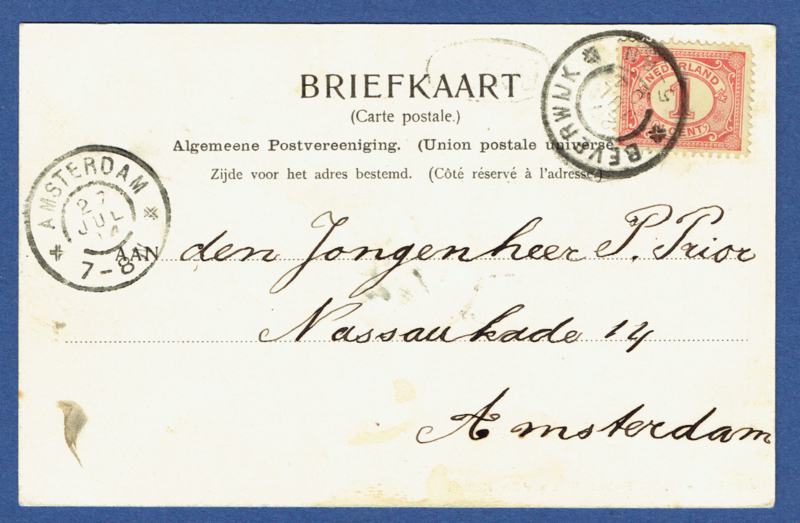 BRIEFKAART
(Carte postale.)
Algemeene Postvereeniging. (Union postale universe
Zijde voor het adres bestemd. (Côté réservé à l'adresse.)
NEDERLAND
1
CENT
BEVERWIJK
AMSTERDAM
27
JUL
7-8
AAN den Jongenheer P. Prior
Nassaukade 14
Amsterdam